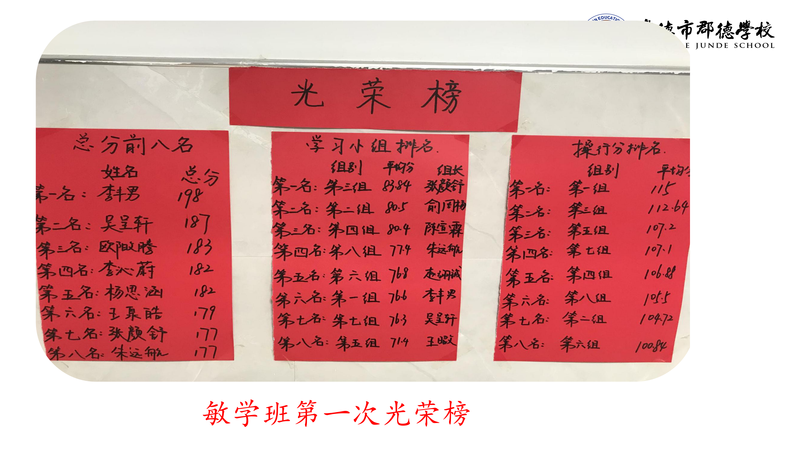 德市郡德学校
E JUNDE SCHOOL
光荣榜
总分前八名
姓名 总分
第一名：李丰男 198
第二名：吴呈轩 187
第三名：欧阳文腾 183
第四名：李沁蔚 182
第五名：杨思涵 182
第六名：王 皓 179
第七名：张颢舒 177
第八名：朱远敏 177
学习小组排名
组别 平均分 组长
第一名：第三组 83.84 张颢舒
第二名：第二组 80.5
第三名：第四组 80.4
第四名：第八组 77.9 朱远敏
第五名：第六组 76.8
第六名：第一组 76.6 李丰男
第七名：第七组 76.3 吴呈轩
第八名：第五组 71.9
操行分排名
组别 平均分
第一名：第一组 115
第二名：第三组 112.64
第三名：第五组 107.2
第四名：第七组 107.1
第五名：第四组 106.88
第六名：第八组 105.5
第七名：第二组 104.72
第八名：第六组 100.84
敏学班第一次光荣榜